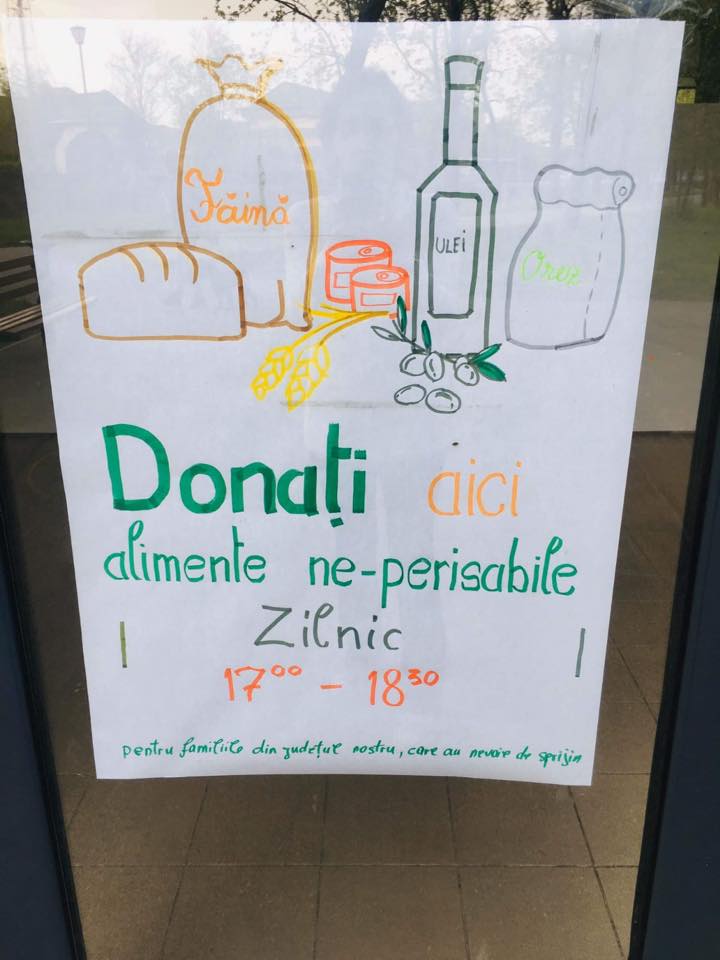 Făină
ULEi
Orez
Donați aici
alimente ne-perisabile
Zilnic
17⁰⁰ - 18³⁰
pentru familiile din județul nostru, care au nevoie de sprijin